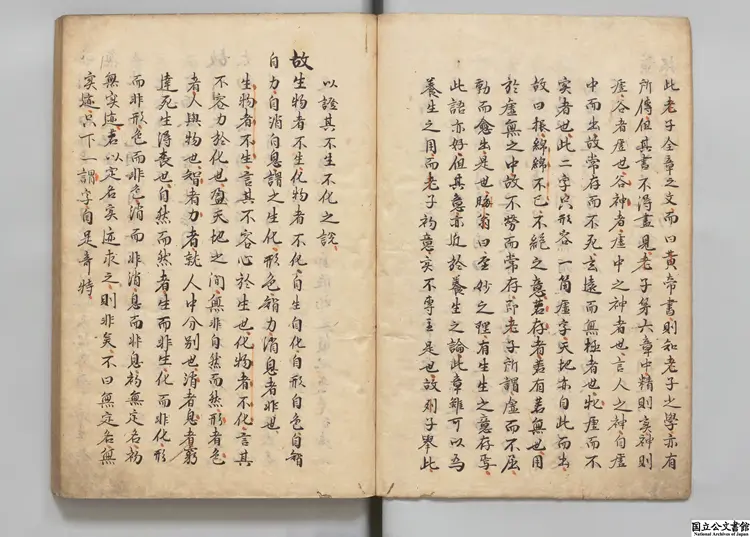 此老子全章之文而曰黄帝書則知老子之學亦有
所傳但其書不得盡見老子第六章中精則实神則
虚谷者虚也谷神者虚中之神者也言人之神自虚
中而出故常存而不死玄遠而無極者也牝虚而不
实者也此二字只形容一箇虚字天地亦自此而出
故曰根綿綿不已不絶之意若存者若有若無也用
於虚無之中故不勞而常存即老子所謂虚而不屈
動而愈出是也晦翁曰至妙之理有生生之意存焉
此語亦好但其意亦近於養生之論此章雖可以為
養生之用而老子初意实不專主是也故列子舉此
以證其不生不化之說
故生物者不生化物者不化自生自化自形自色自智
自力自消自息謂之生化形色智力消息者非也
生物者不生言其不容心於生也化物者不化言其
不容力於化也盈天地之間無非自然而然形者色
者人與物也智者力者就人中分別也消者息者窮
達死生得喪也自然而然者生而非生化而非化形
而非形色而非色消而非消息而非息初無定名初
無实迹若以定名实迹求之則非矣不曰無定名無
实迹只下一謂字自是奇特
国立公文書館
National Archives of Japan